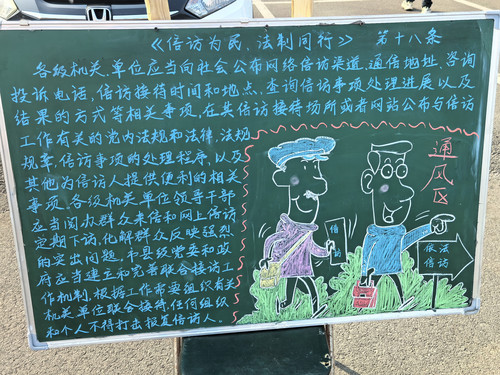 《信访为民,法制同行》 第十八条
各级机关、单位应当向社会公布网络信访渠道、通信地址、咨询
投诉电话、信访接待时间和地点、查询信访事项处理进展以及
结果的方式等相关事项,在其信访接待场所或者网站公布与信访
工作有关的党内法规和法律、法规
规章,信访事项的处理程序,以及
其他为信访人提供便利的相关
事项。各级机关单位领导干部
应当阅办群众来信和网上信访
定期下访,化解群众反映强烈
的突出问题。市县级党委和政
府应当建立和完善联合接访工
作机制,根据工作需要组织有关
机关单位联合接待,任何组织
和个人不得打击报复信访人。
通风区
信访
依法
信访